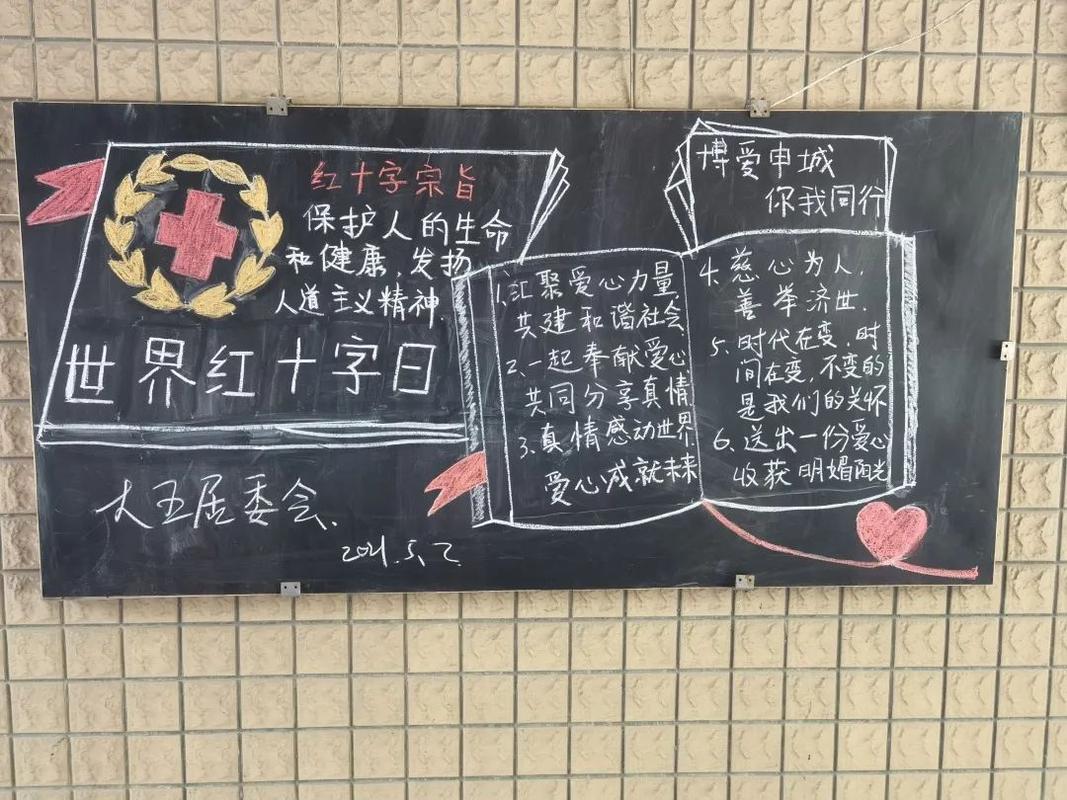 红十字宗旨
保护人的生命
和健康,发扬
人道主义精神.
世界红十字日
大五居委会.
2021.5.2
博爱申城
你我同行
1.汇聚爱心力量
共建和谐社会
2.一起奉献爱心
共同分享真情
3.真情感动世界
爱心成就未来
4.慈心为人,
善举济世.
5.时代在变,时
间在变,不变的
是我们的关怀
6.送出一份爱心
收获明媚阳光